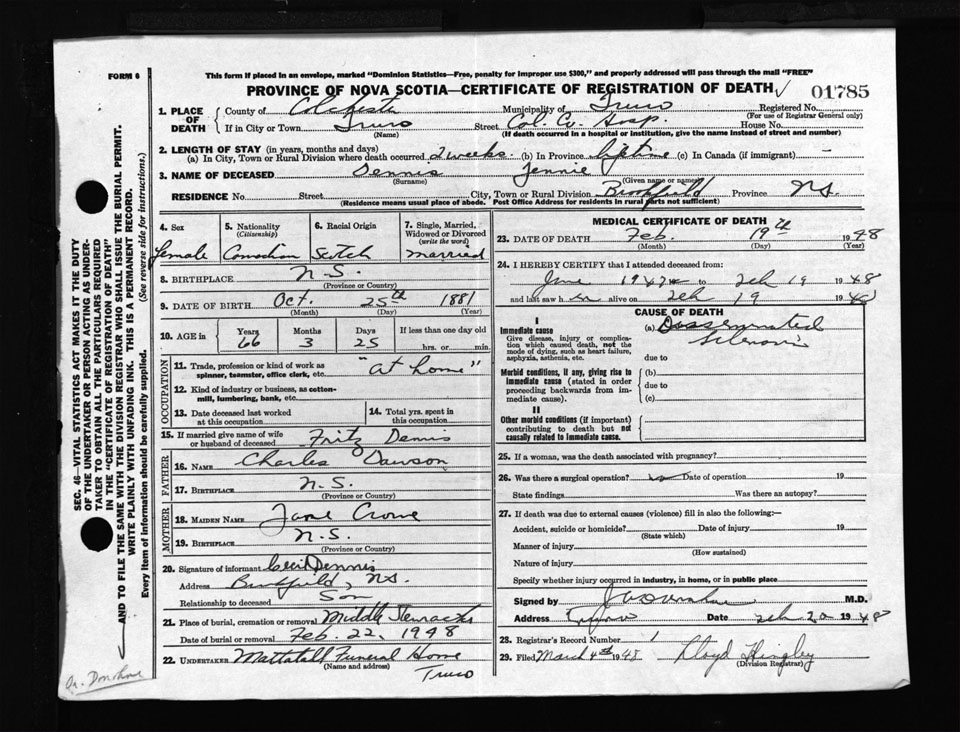 FORM 6
This form if placed in an envelope, marked "Dominion Statistics—Free, penalty for improper use $300," and properly addressed will pass through the mail "FREE"
PROVINCE OF NOVA SCOTIA—CERTIFICATE OF REGISTRATION OF DEATH 01785
1. PLACE OF DEATH County of Colchester Municipality of Truro Registered No.
(For use of Registrar General only)
If in City or Town Truro Street Col. Co. Hosp. House No.
(Name) (If death occurred in a hospital or institution, give the name instead of street and number)
2. LENGTH OF STAY (in years, months and days)
(a) In City, Town or Rural Division where death occurred 2 weeks. (b) In Province lifetime (c) In Canada (if immigrant) —
3. NAME OF DECEASED Dennis Jennie
(Surname) (Given name or names)
RESIDENCE No. Street City, Town or Rural Division Brookfield Province N.S.
(Residence means usual place of abode. Post Office Address for residents in rural parts not sufficient)
SEC. 46—VITAL STATISTICS ACT MAKES IT THE DUTY
OF THE UNDERTAKER OR PERSON ACTING AS UNDER-
TAKER TO OBTAIN ALL THE PARTICULARS REQUIRED
IN THE "CERTIFICATE OF REGISTRATION OF DEATH"
AND TO FILE THE SAME WITH THE DIVISION REGISTRAR WHO SHALL ISSUE THE BURIAL PERMIT.
WRITE PLAINLY WITH UNFADING INK. THIS IS A PERMANENT RECORD.
Every item of information should be carefully supplied. (See reverse side for instructions.)
4. Sex 5. Nationality 6. Racial Origin 7. Single, Married,
(Citizenship) Widowed or Divorced
(write the word)
Female Canadian Scotch married
8. BIRTHPLACE N.S.
(Province or Country)
9. DATE OF BIRTH Oct. 25th 1881
(Month) (Day) (Year)
10. AGE in Years Months Days If less than one day old
66 3 25 hrs. or min.
OCCUPATION
11. Trade, profession or kind of work as "at home"
spinner, teamster, office clerk, etc.
12. Kind of industry or business, as cotton-
mill, lumbering, bank, etc.
13. Date deceased last worked 14. Total yrs. spent in
at this occupation this occupation
15. If married give name of wife Fritz Dennis
or husband of deceased
FATHER
16. NAME Charles Dawson
17. BIRTHPLACE N.S.
(Province or Country)
MOTHER
18. MAIDEN NAME Jane Crowe
19. BIRTHPLACE N.S.
(Province or Country)
20. Signature of informant Cecil Dennis
Address Brookfield, N.S.
Relationship to deceased Son
21. Place of burial, cremation or removal Middle Stewiacke
Date of burial or removal Feb. 22, 1948
22. UNDERTAKER Mattatall Funeral Home
(Name and address) Truro
MEDICAL CERTIFICATE OF DEATH
23. DATE OF DEATH Feb. 19th 1948
(Month) (Day) (Year)
24. I HEREBY CERTIFY that I attended deceased from:
June 1947 to Feb 19 1948
and last saw her alive on Feb 19 1948
CAUSE OF DEATH
I
Immediate cause (a) Disseminated
Give disease, injury or complica- Sclerosis
tion which caused death, not the
mode of dying, such as heart failure, due to
asphyxia, asthenia, etc.
Morbid conditions, if any, giving rise to (b)
immediate cause (stated in order due to
proceeding backwards from im-
mediate cause). (c)
II
Other morbid conditions (if important)
contributing to death but not
causally related to immediate cause.
25. If a woman, was the death associated with pregnancy?
26. Was there a surgical operation? no Date of operation 19
State findings Was there an autopsy?
27. If death was due to external causes (violence) fill in also the following:—
Accident, suicide or homicide? Date of injury 19
(State which)
Manner of injury
(How sustained)
Nature of injury
Specify whether injury occurred in industry, in home, or in public place
Signed by M.D.
Address Truro Date Feb 20 1948
28. Registrar's Record Number 1
29. Filed March 4th 1948 Lloyd Hingley
(Division Registrar)
Donohoe